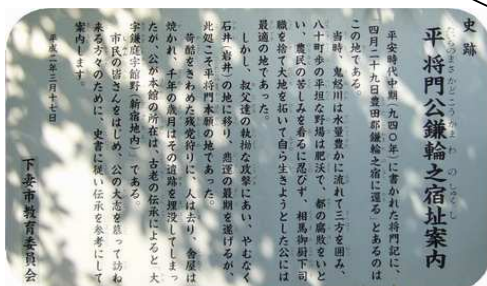 史跡
平将門公鎌輪之宿址案内
たいらのまさかどこうかまわのしゅくし
平安時代中期(九四〇年)に書かれた将門記に、
四月二十九日豊田郡鎌輪之宿に還る」とあるのは
この地である。
当時、鬼怒川は水量豊かに流れて三方を囲み、
八十町歩の平坦な野場は肥沃で、都の腐敗をいと
い、農民の苦しみを看るに忍びず、相馬御厨下司
職を捨て大地を拓いて自ら生きようとした公には
最適の地であった。
しかし、叔父達の執拗な攻撃にあい、やむなく
石井(岩井)の地に移り、悲運の最期を遂げるが、
此処こそ平将門本願の地であった。
苛酷をきわめた残党狩りに、人は去り、舎屋は
焼かれ、千年の歳月はその遺跡を埋没してしまっ
たが、公が本館の所在は、古老の伝承によると「大
字鎌庭字館野(新宿地内)」である。
市民の皆さんをはじめ、公の大志を慕って訪ね
来る方々のために、史書に従い伝承を参考にして
案内します。
平成二年三月十七日
下妻市教育委員会